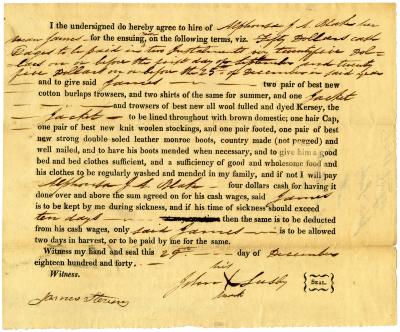 I the undersigned do hereby agree to hire of Alphonsa J. A. Blake her
man James for the ensuing, on the following terms, viz. Fifty Dollars cash
Wages to be paid in two instalments viz twentyfive Dol-
lars on or before the first day of September and twenty
five Dollars on or before the 25th of December in said year
and to give said James two pair of best new
cotton burlaps trowsers, and two shirts of the same for summer, and one Jacket
and trowsers of best new all wool fulled and dyed Kersey, the
Jacket to be lined throughout with brown domestic; one hair Cap,
one pair of best new knit woolen stockings, and one pair footed, one pair of best
new strong double-soled leather monroe boots, country made (not pegged) and
well nailed, and to have his boots mended when necessary, and to give him a good
bed and bed clothes sufficient, and a sufficiency of good and wholesome food and
his clothes to be regularly washed and mended in my family, and if not I will pay
Alphonsa J. A. Blake four dollars cash for having it
done over and above the sum agreed on for his cash wages, said James
is to be kept by me during sickness, and if his time of sickness should exceed
ten days then the same is to be deducted
from his cash wages, only said James is to be allowed
two days in harvest, or to be paid by me for the same.
Witness my hand and seal this 29th day of December
eighteen hundred and forty.
Witness.
his
John X Lusby
mark
SEAL.
James Steven